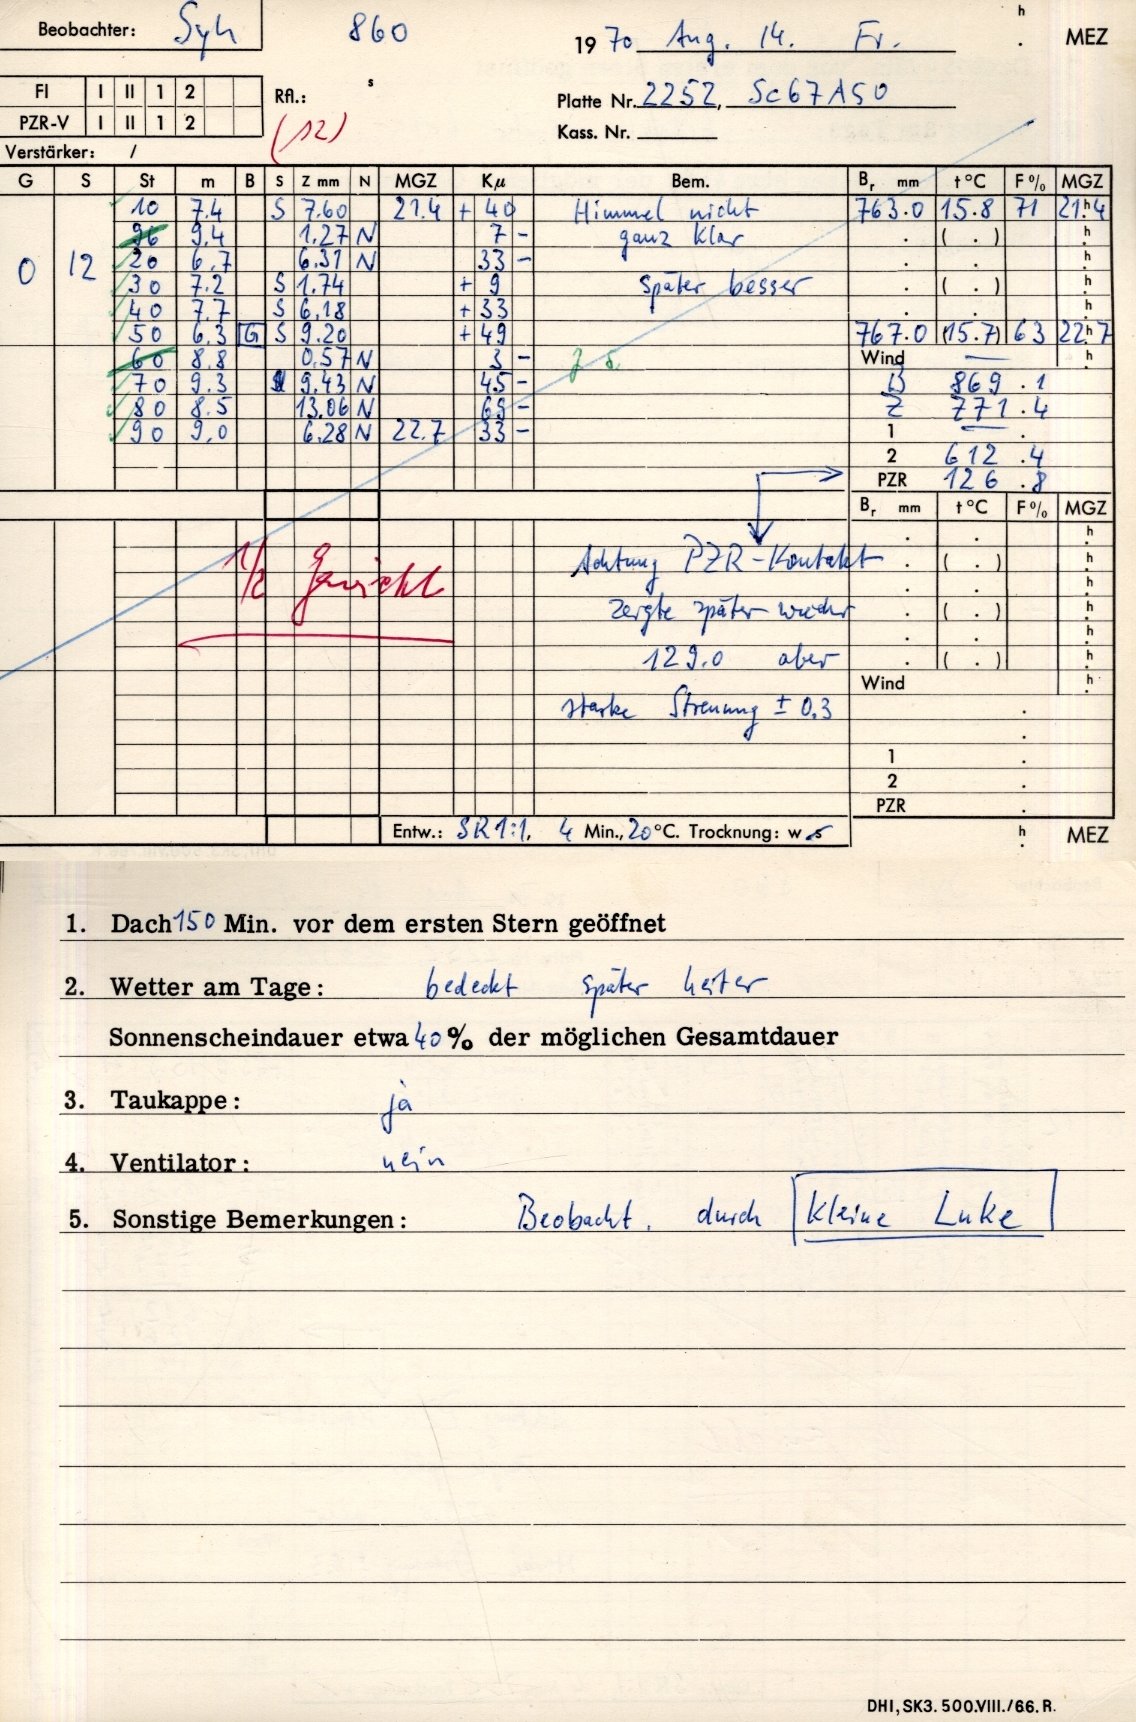 Beobachter: Syh 860 1970 Aug. 14. Fr. h . MEZ
FI I II 1 2 Rfl.: s Platte Nr. 2252, Sc67A50
PZR-V I II 1 2 (12) Kass. Nr.
Verstärker: /
G S St m B S Z mm N MGZ Kμ Bem. Br mm t°C F% MGZ
10 7.4 S 7.60 21.4 + 40 Himmel nicht 763.0 15.8 71 21h.4
9.4 1.27 N 7 - ganz klar . ( . ) h.
0 12 20 6.7 6.31 N 33 - . . h.
30 7.2 S 1.74 + 9 später besser . ( . ) h.
40 7.7 S 6.18 + 33 . . h.
50 6.3 G S 9.20 + 49 767.0 (15.7) 63 22h.7
60 8.8 0.57 N 3 - Wind — h.
70 9.3 9.43 N 45 - B 869 .1
80 8.5 13.06 N 69 - Z 771 .4
90 9.0 6.28 N 22.7 33 - 1 — .
2 612 .4
PZR 126 .8
Br mm t°C F% MGZ
. . h.
1/2 Gewicht Achtung PZR-Kontakt . ( . ) h.
. . h.
zeigte später wieder . ( . ) h.
. . h.
129.0 aber . ( . ) h.
Wind h.
starke Streuung ± 0.3 .
.
1 .
2 .
PZR .
Entw.: SR 1:1, 4 Min., 20°C. Trocknung: w s h . MEZ
1. Dach 150 Min. vor dem ersten Stern geöffnet
2. Wetter am Tage: bedeckt später heiter
Sonnenscheindauer etwa 40% der möglichen Gesamtdauer
3. Taukappe: ja
4. Ventilator: nein
5. Sonstige Bemerkungen: Beobacht. durch kleine Luke
DHI, SK3. 500.VIII./66. R.